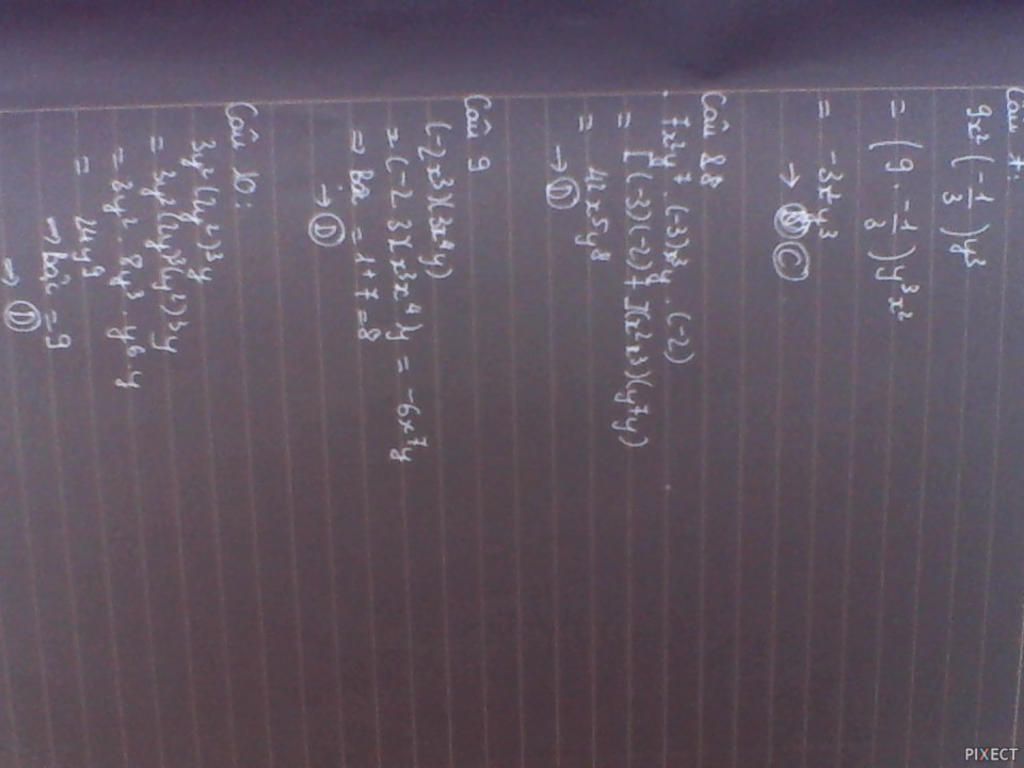 Câu 7:
9x² (-1/3) y³
= (9 . -1/3) y³x²
= -3x²y³
→ C
Câu 8
7x²y⁷ . (-3)x³y . (-2)
= [(-3)(-2) + 7](x²x³)(y⁷y)
= 42x⁵y⁸
→ D
Câu 9
(-2x³)(3x⁴y)
= (-2.3)(x³x⁴)y = -6x⁷y
⇒ Bậc = 1 + 7 = 8
→ D
Câu 10:
3y²(2y²)³y
= 3y²(2y)³(y²)³y
= 3y² . 8y³ . y⁶ . y
= 24y⁹
⇒ bậc = 9
→ D
PIXECT